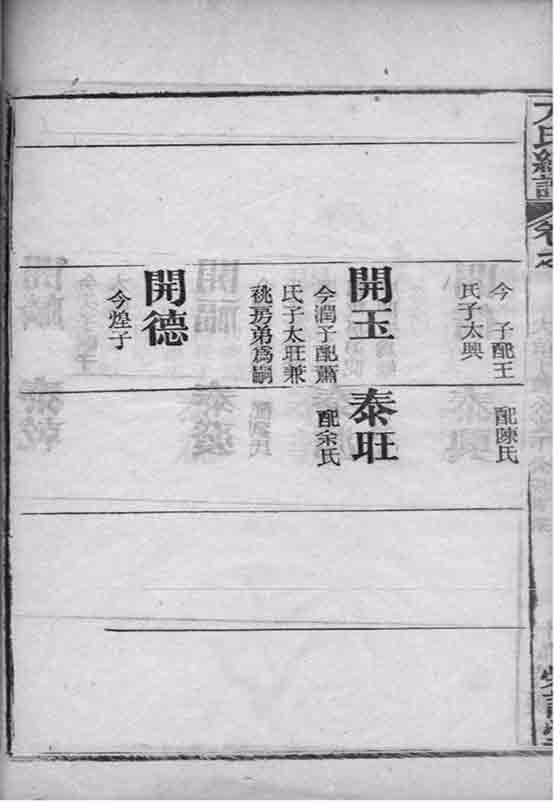 氏續譜
今 子配王
氏子太興
配陳氏
開玉
今潤子配蕭
氏子太旺兼
祧房弟爲嗣
泰旺
配余氏
開德
今煌子